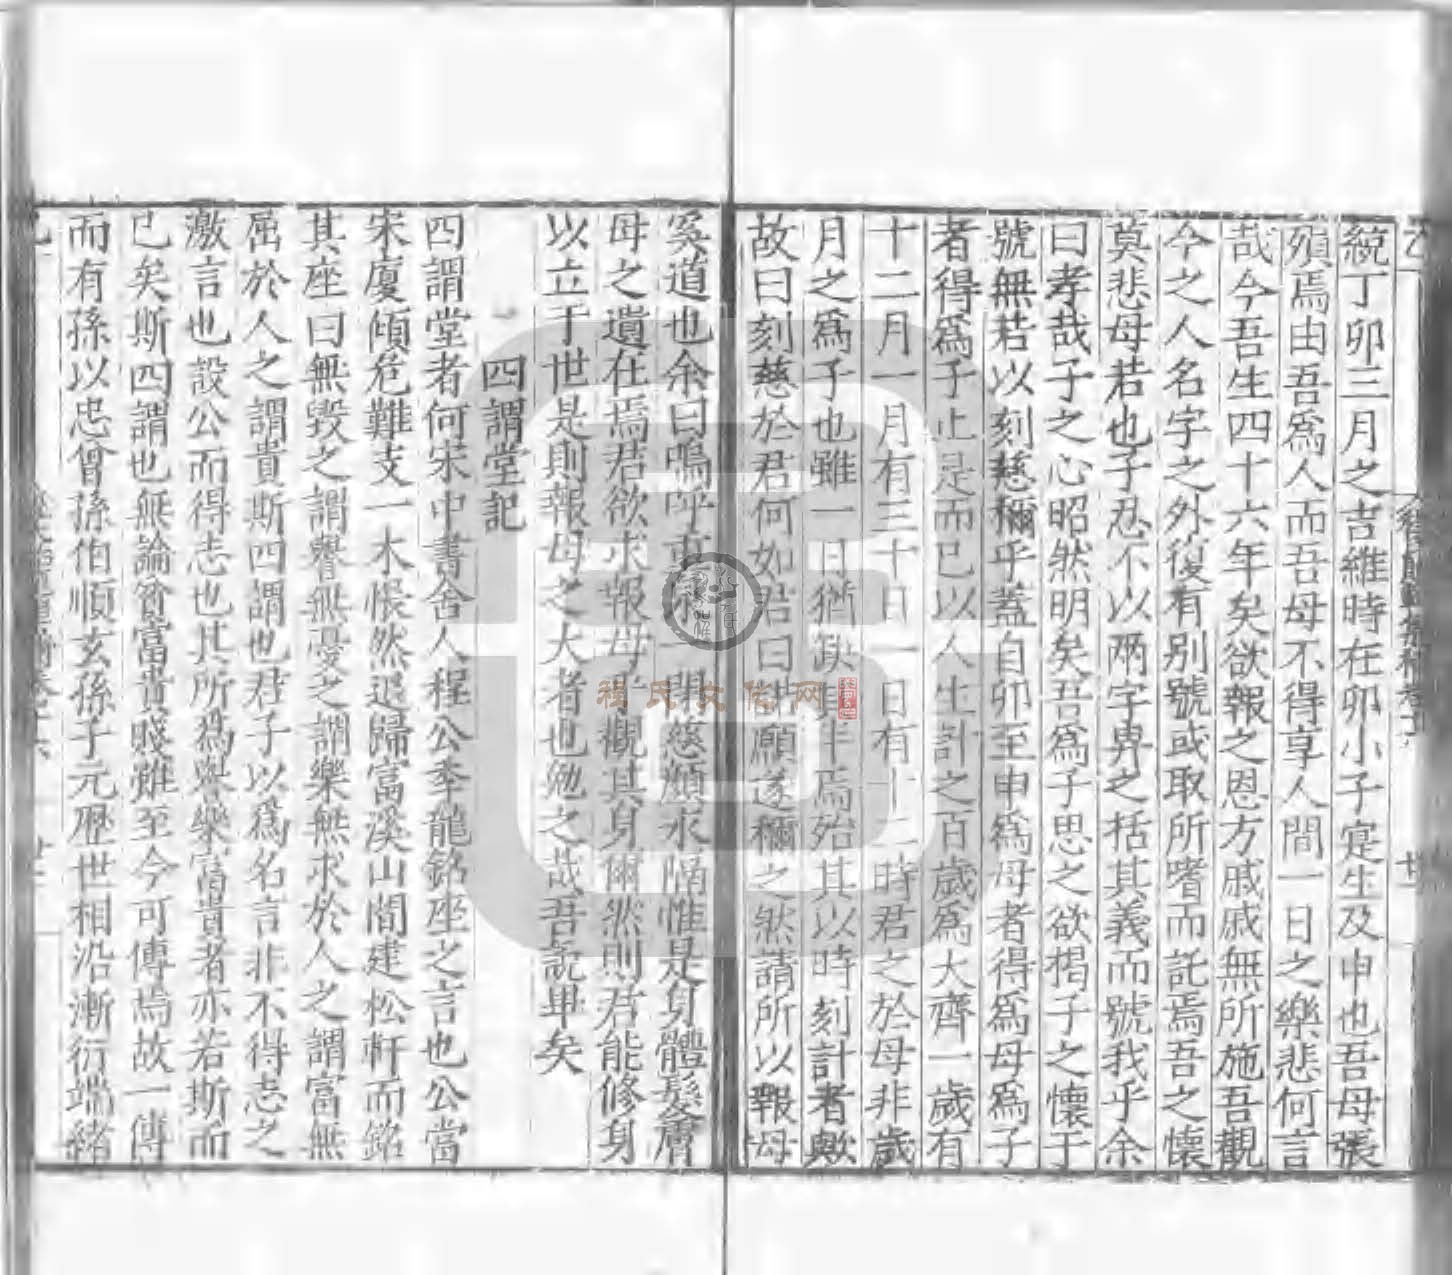 統丁卯三月之吉維時在卯小子寔生及申也吾母張
殞焉由吾爲人而吾母不得享人間一日之樂悲何言
哉今吾生四十六年矣欲報之恩方戚戚無所施吾觀
今之人名字之外復有別號或取所嗜而託焉吾之懷
莫悲母若也子忍不以兩字畀之括其義而號我乎余
曰孝哉子之心昭然明矣吾爲子思之欲楬子之懷于
號無若以刻慈稱乎蓋自卯至申爲母者得爲母爲子
者得爲子止是而已以人生計之百歲爲大齊一歲有
十二月一月有三十日一日有十二時君之於母非歲
月之爲子也雖一日猶缺半焉殆其以時刻計者歟
故曰刻慈於君何如君曰謝願遂稱之然請所以報母
奚道也余曰嗚呼一閉慈顏永隔惟是身體髮膚
母之遺在焉君欲求報母乎觀其身爾然則君能修身
以立于世是則報母之大者也勉之哉吾說畢矣
四謂堂記
四謂堂者何宋中書舍人程公季龍銘座之言也公當
宋廈傾危難支一木悵然退歸富溪山間建松軒而銘
其座曰無毀之謂譽無憂之謂樂無求於人之謂富無
屈於人之謂貴斯四謂也君子以爲名言非不得志之
激言也設公而得志也其所爲與樂富貴者亦若斯而
已矣斯四謂也無論貧富貴賤雖至今可傳焉故一傳
而有孫以忠曾孫伯順玄孫子元歷世相沿漸衍端緒
程氏文化网